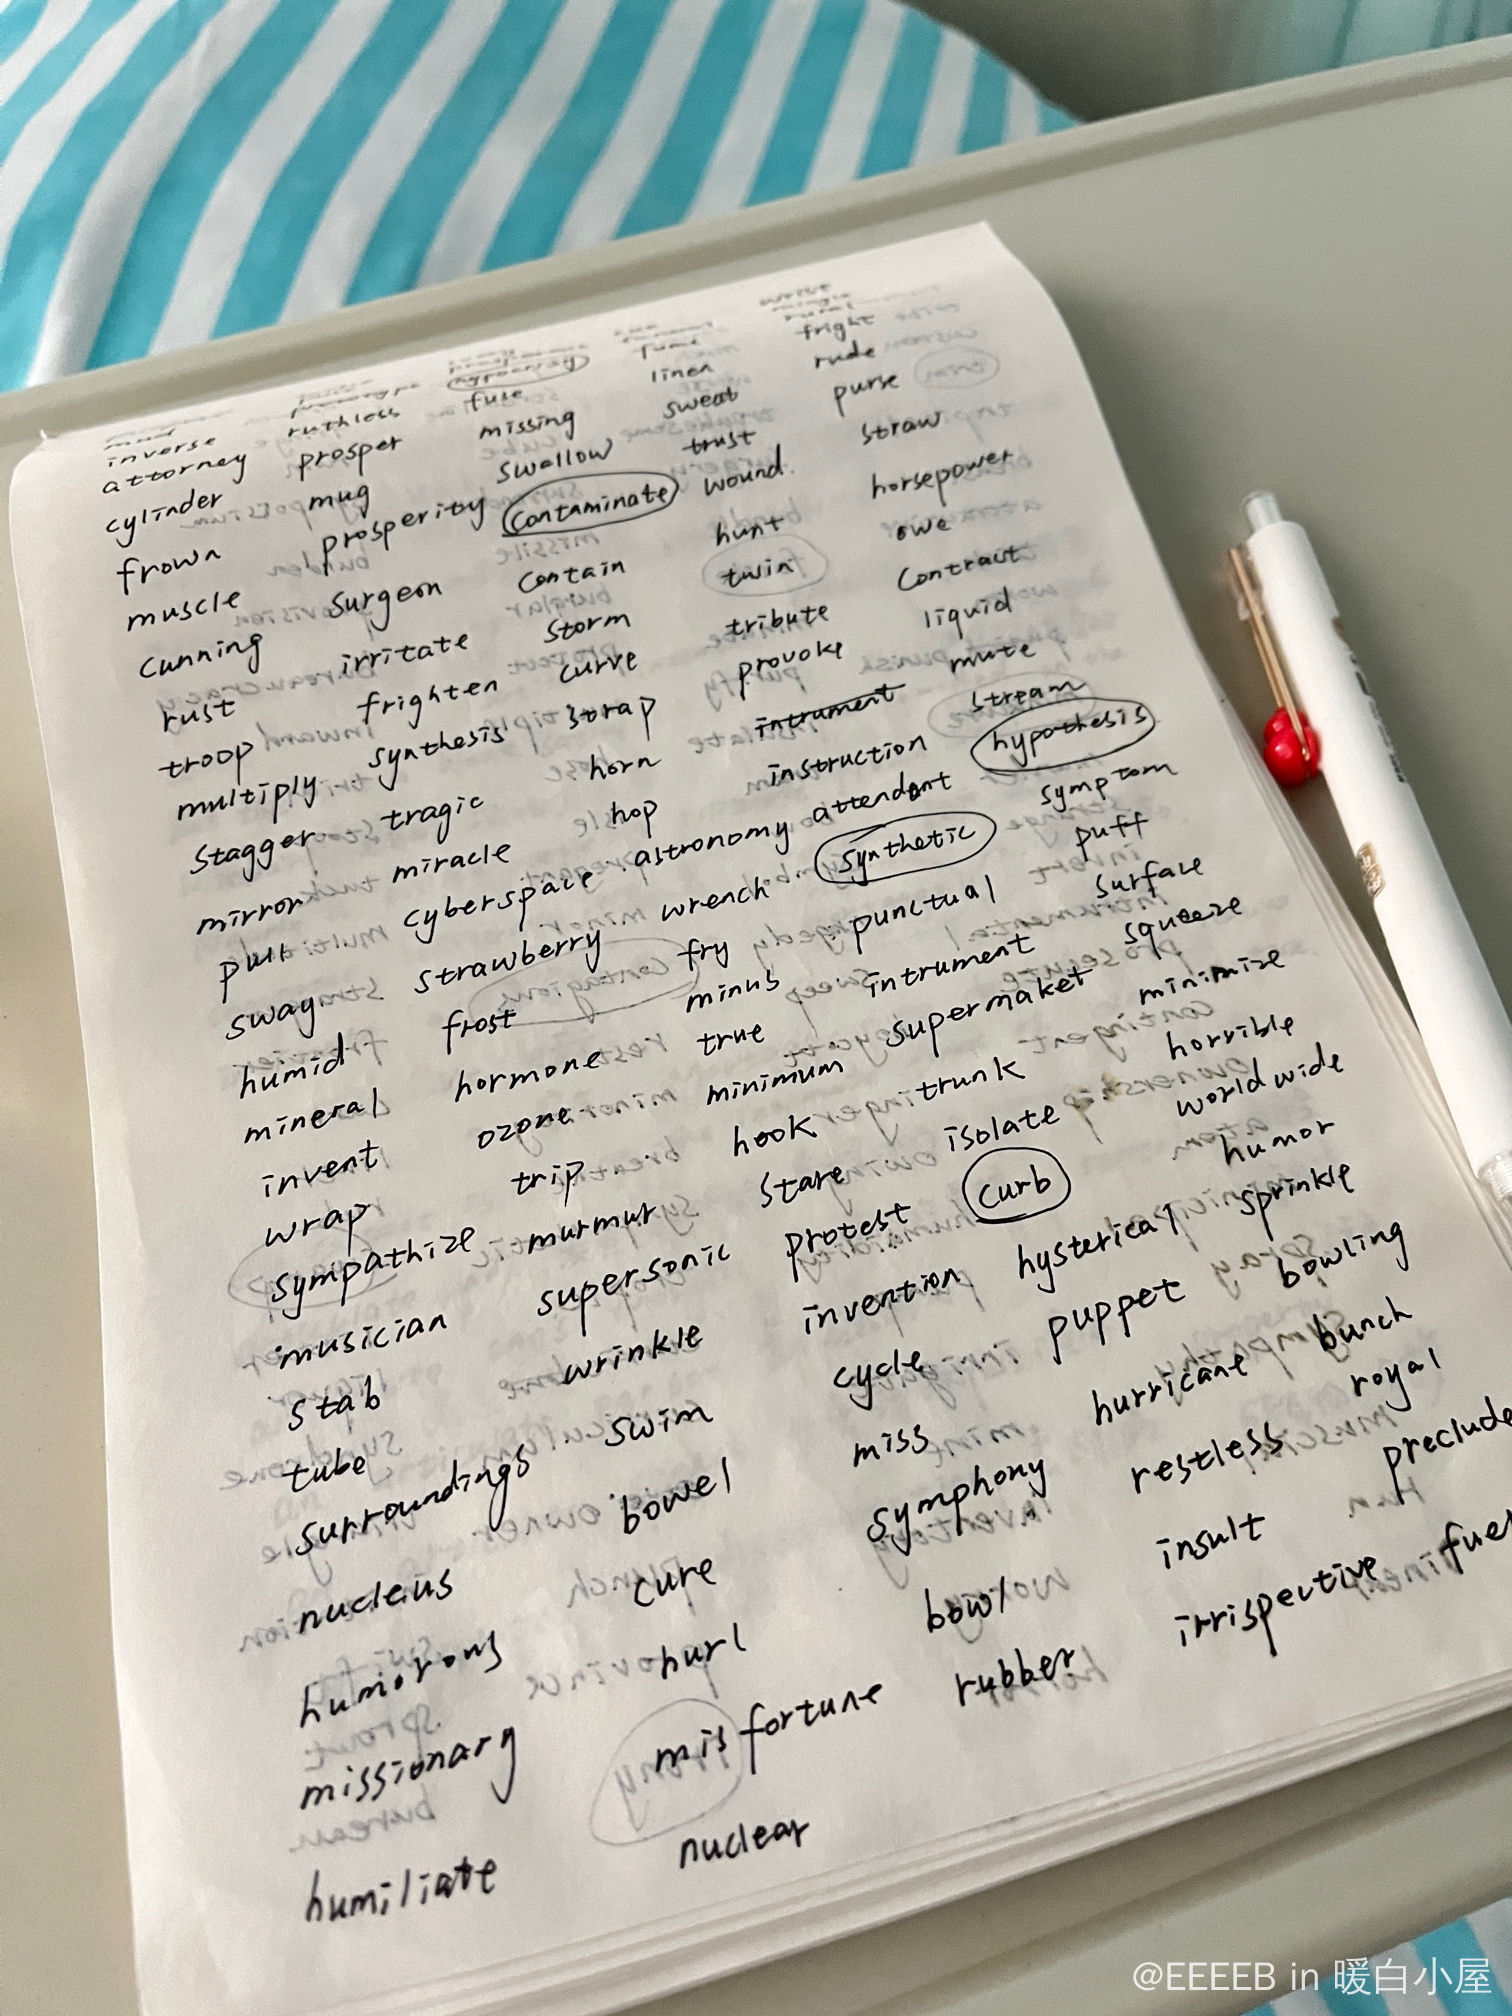 inverse
attorney
cylinder
frown
muscle
cunning
rust
troop
multiply
stagger
mirror
pull
sway
humid
mineral
invent
wrap
sympathize
musician
stab
tube
surroundings
nucleus
humorous
missionary
humiliate
ruthless
prosper
mug
prosperity
surgeon
irritate
frighten
synthesis
tragic
miracle
cyberspace
strawberry
frost
hormone
ozone
trip
murmur
supersonic
wrinkle
swim
bowel
cure
hurl
misfortune
nuclear
hypocrisy
fuse
missing
swallow
contaminate
contain
storm
curve
strap
horn
hop
astronomy
wrench
fry
minus
true
minimum
hook
stare
protest
invention
cycle
miss
symphony
bowl
rubber
linen
sweat
trust
wound
hunt
twin
tribute
provoke
intrument
instruction
attendant
synthetic
punctual
intrument
supermaket
trunk
isolate
curb
hysterical
puppet
hurricane
restless
insult
irrispective
rural
fright
rude
purse
straw
horsepower
owe
contract
liquid
mute
stream
hypothesis
symptom
puff
surface
squeeze
minimize
horrible
worldwide
humor
sprinkle
bowling
bunch
royal
preclude
@EEEEB in 暖白小屋